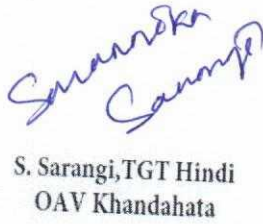 Sarangi
S. Sarangi,TGT Hindi
OAV Khandahata